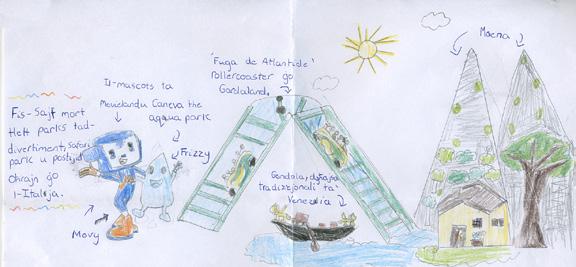 Fis-Sajf mort
Ħaft parks tad-
divertiment, Safari
park u postijiet
Oħrajn ġo
l-Italja.
Il-mascots ta
Movielandu Caneva the
aqqua park
Frizzy
Movy
'Fuga de Atlantide'
rollercoaster ġo
Gardaland.
Gondola, dgħajsa
tradizzjonali ta'
Venezia
Moena